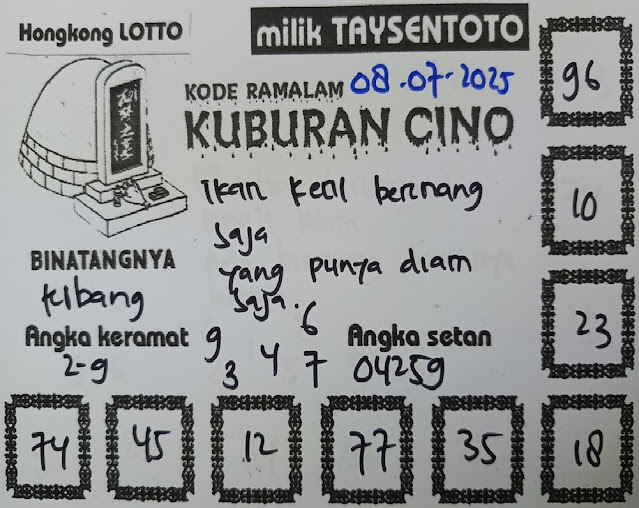 Hongkong LOTTO
milik TAYSENTOTO
KODE RAMALAM 08-07-2025
KUBURAN CINO
ikan kecil berenang
saja
yang punya diam
saja.
BINATANGNYA
Angka keramat
2-9
9 3 4 7 6
Angka setan
04259
96
10
23
74 45 12 77 35 18